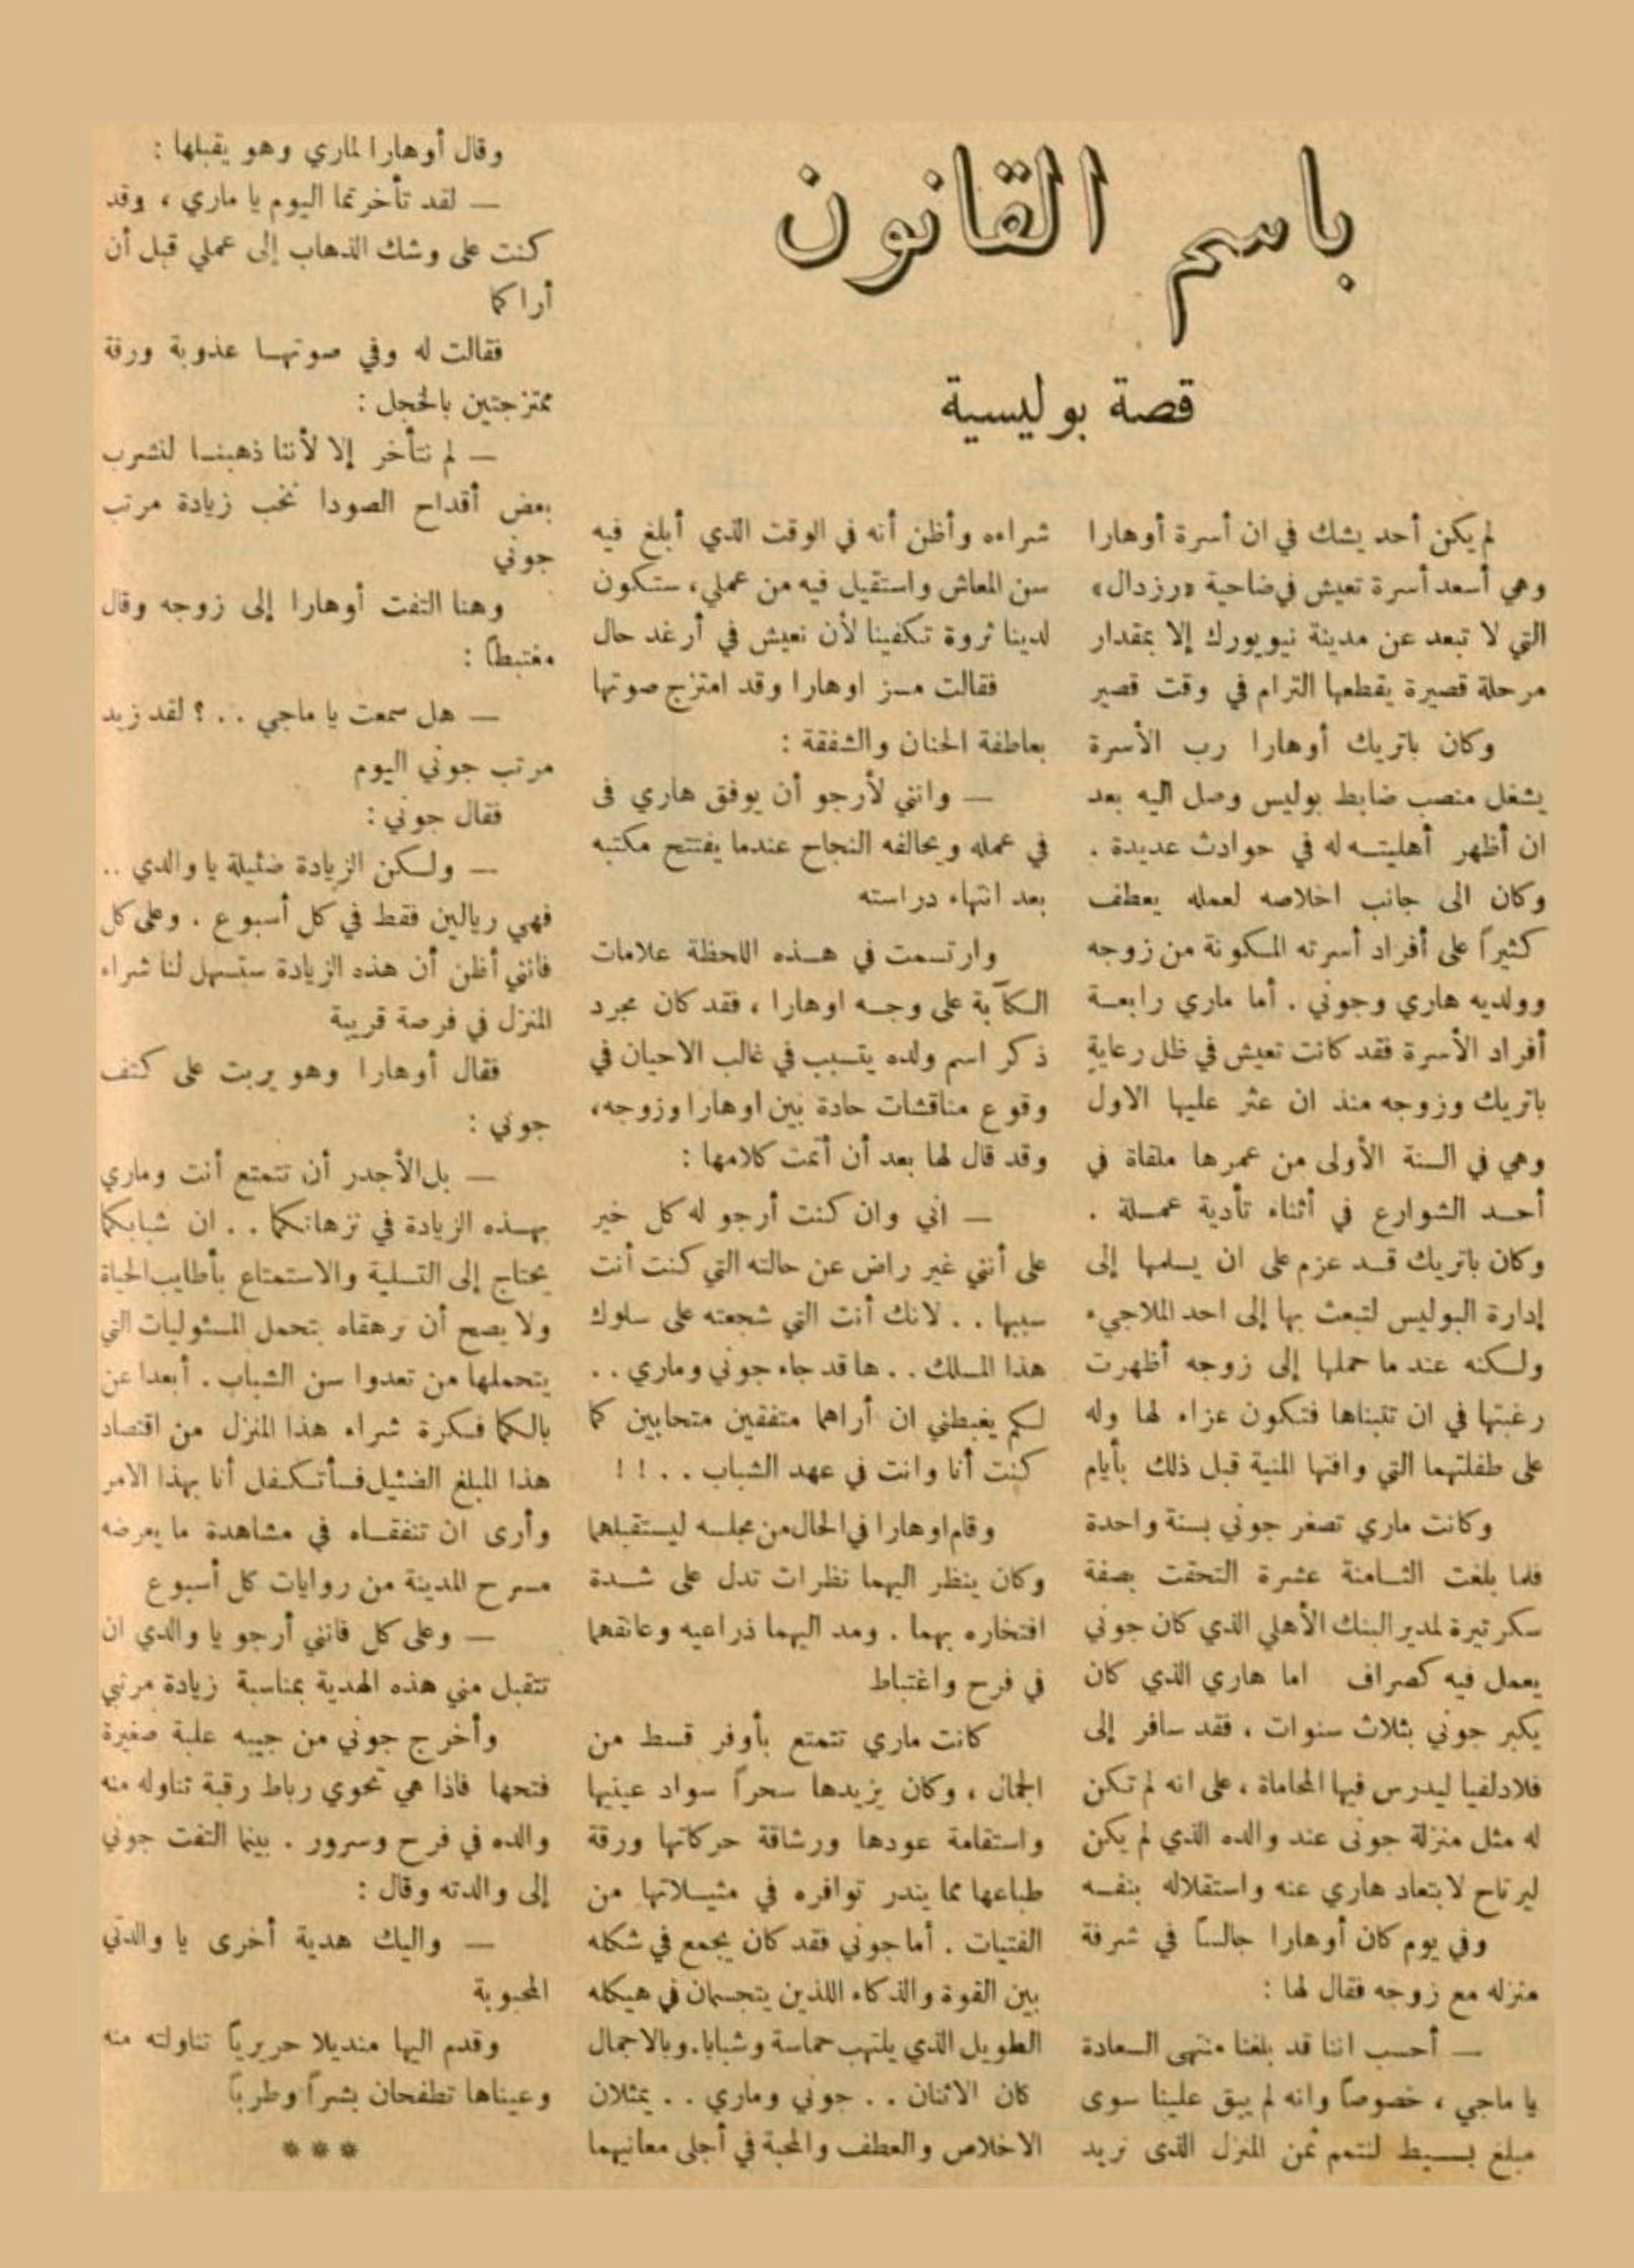 باسم القانون
قصة بوليسية
لم يكن أحد يشك في ان أسرة أوهارا
وهي أسعد أسرة تعيش في ضاحية «رزدال»
التي لا تبعد عن مدينة نيويورك إلا بمقدار
مرحلة قصيرة يقطعها الترام في وقت قصير
وكان باتريك أوهارا رب الأسرة
يشغل منصب ضابط بوليس وصل اليه بعد
ان أظهر أهليته له في حوادث عديدة .
وكان الى جانب اخلاصه لعمله يعطف
كثيراً على أفراد أسرته المكونة من زوجه
وولديه هاري وجوني . أما ماري رابعة
أفراد الأسرة فقد كانت تعيش في ظل رعاية
باتريك وزوجه منذ ان عثر عليها الاول
وهي في السنة الأولى من عمرها ملقاة في
أحد الشوارع في أثناء تأدية عمله .
وكان باتريك قد عزم على ان يسلمها إلى
إدارة البوليس لتبعث بها إلى احد الملاجيء
ولكنه عند ما حملها إلى زوجه أظهرت
رغبتها في ان تتبناها فتكون عزاء لها وله
على طفلتهما التي وافتها المنية قبل ذلك بأيام
وكانت ماري تصغر جوني بسنة واحدة
فلما بلغت الثامنة عشرة التحقت بصفة
سكرتيرة لمدير البنك الأهلي الذي كان جوني
يعمل فيه كصراف اما هاري الذي كان
يكبر جوني بثلاث سنوات ، فقد سافر إلى
فلادلفيا ليدرس فيها المحاماة ، على انه لم تكن
له مثل منزلة جونى عند والده الذي لم يكن
ليرتاح لابتعاد هاري عنه واستقلاله بنفسه
وفي يوم كان أوهارا جالساً في شرفة
منزله مع زوجه فقال لها :
— أحسب اننا قد بلغنا منتهى السعادة
يا ماجي ، خصوصاً وانه لم يبق علينا سوى
مبلغ بسيط لنتمم ثمن المنزل الذى نريد
شراءه وأظن أنه في الوقت الذي أبلغ فيه
سن المعاش واستقيل فيه من عملي، ستكون
لدينا ثروة تكفينا لأن نعيش في أرغد حال
فقالت مسز اوهارا وقد امتزج صوتها
بعاطفة الحنان والشفقة :
— وانني لأرجو أن يوفق هاري فى
في عمله ويحالفه النجاح عندما يفتتح مكتبه
بعد انتهاء دراسته
وارتسمت في هذه اللحظة علامات
الكآبة على وجه اوهارا ، فقد كان مجرد
ذكر اسم ولده يتسبب في غالب الاحيان في
وقوع مناقشات حادة بين اوهارا وزوجه،
وقد قال لها بعد أن أتمت كلامها :
— اني وان كنت أرجو له كل خير
على أنني غير راض عن حالته التي كنت أنت
سببها . . لانك أنت التي شجعته على سلوك
هذا المسلك . . ها قد جاء جوني وماري . .
لكم يغبطني ان أراهما متفقين متحابين كما
كنت أنا وانت في عهد الشباب . . ! !
وقام اوهارا في الحال من مجلسه ليستقبلهما
وكان ينظر اليهما نظرات تدل على شدة
افتخاره بهما . ومد اليهما ذراعيه وعانقهما
في فرح واغتباط
كانت ماري تتمتع بأوفر قسط من
الجمال ، وكان يزيدها سحراً سواد عينيها
واستقامة عودها ورشاقة حركاتها ورقة
طباعها مما يندر توافره في مثيلاتها من
الفتيات . أما جوني فقد كان يجمع في شكله
بين القوة والذكاء اللذين يتجسمان في هيكله
الطويل الذي يلتهب حماسة وشبابا. وبالاجمال
كان الاثنان . . جوني وماري . . يمثلان
الاخلاص والعطف والمحبة في أجلى معانيهما
وقال أوهارا لماري وهو يقبلها :
— لقد تأخرتما اليوم يا ماري ، وقد
كنت على وشك الذهاب إلى عملي قبل أن
أراكما
فقالت له وفي صوتها عذوبة ورقة
ممتزجتين بالخجل :
— لم نتأخر إلا لأننا ذهبنا لنشرب
بعض أقداح الصودا نخب زيادة مرتب
جوني
وهنا التفت أوهارا إلى زوجه وقال
مغتبطاً :
— هل سمعت يا ماجي . . ؟ لقد زيد
مرتب جوني اليوم
فقال جوني :
— ولكن الزيادة ضئيلة يا والدي ..
فهي ريالين فقط في كل أسبوع . وعلى كل
فانني أظن أن هذه الزيادة ستسهل لنا شراء
المنزل في فرصة قريبة
فقال أوهارا وهو يربت على كتف
جوني :
— بل الأجدر أن تتمتع أنت وماري
بهذه الزيادة في نزهاتكما . . ان شبابكما
يحتاج إلى التسلية والاستمتاع بأطايب الحياة
ولا يصح أن ترهقاه بتحمل المسئوليات التي
يتحملها من تعدوا سن الشباب . أبعدا عن
بالكما فكرة شراء هذا المنزل من اقتصاد
هذا المبلغ الضئيل فسأتكفل أنا بهذا الامر
وأرى ان تنفقاه في مشاهدة ما يعرضه
مسرح المدينة من روايات كل أسبوع
— وعلى كل فانني أرجو يا والدي ان
تتقبل مني هذه الهدية بمناسبة زيادة مرتبي
وأخرج جوني من جيبه علبة صغيرة
فتحها فاذا هي تحوي رباط رقبة تناوله منه
والده في فرح وسرور . بينما التفت جوني
إلى والدته وقال :
— واليك هدية أخرى يا والدتي
المحبوبة
وقدم اليها منديلا حريرياً تناولته منه
وعيناها تطفحان بشراً وطرباً
***